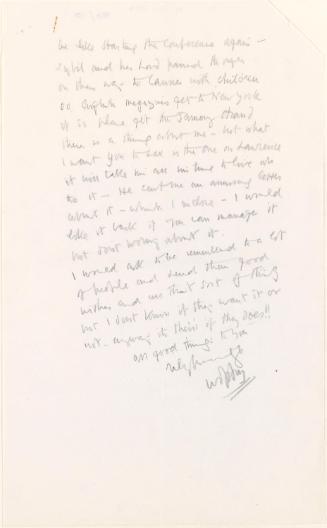 be like starting the Conference again –
Sybil and her Lord passed through
on their way to Cannes with children
do English magazines get to New York
if so please get the January Strand
there is a thing about me – but what
I want you to see is the one on Lawrence
it will take in time to love
to it – He sent me an amusing letter
about it – which I inclose – I would
like it back if you can manage it
but dont worry about it.
I would ask to be remembered to a lot
of people and send them good
wishes and all that sort of thing
but I dont know if they want it or
not – anyway its theirs if they does!!
all good things to you